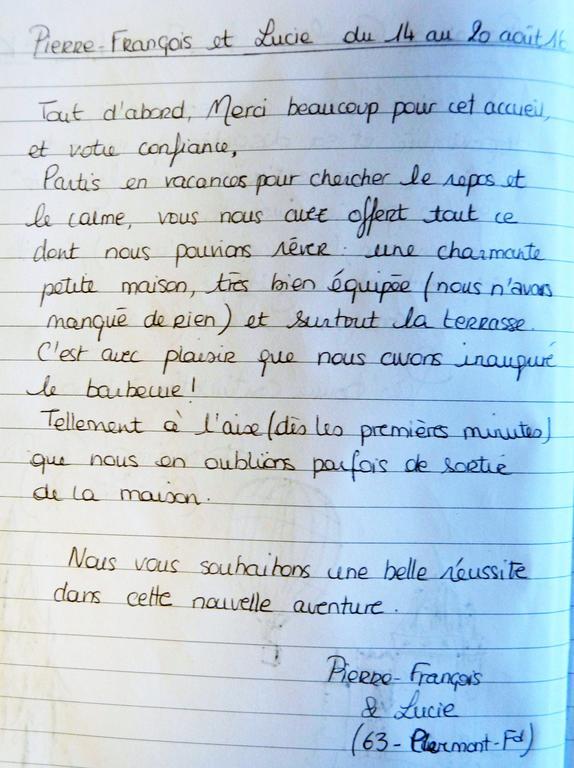 Pierre-François et Lucie du 14 au 20 août 16
Tout d'abord, Merci beaucoup pour cet accueil,
et votre confiance,
Partis en vacances pour chercher le repos et
le calme, vous nous avez offert tout ce
dont nous pouvions rêver : une charmante
petite maison, très bien équipée (nous n'avons
manqué de rien) et surtout la terrasse.
C'est avec plaisir que nous avons inauguré
le barbecue !
Tellement à l'aise (dès les premières minutes)
que nous en oublions parfois de sortir
de la maison.
Nous vous souhaitons une belle réussite
dans cette nouvelle aventure.
Pierre-François
& Lucie
(63 - Clermont-Fd)